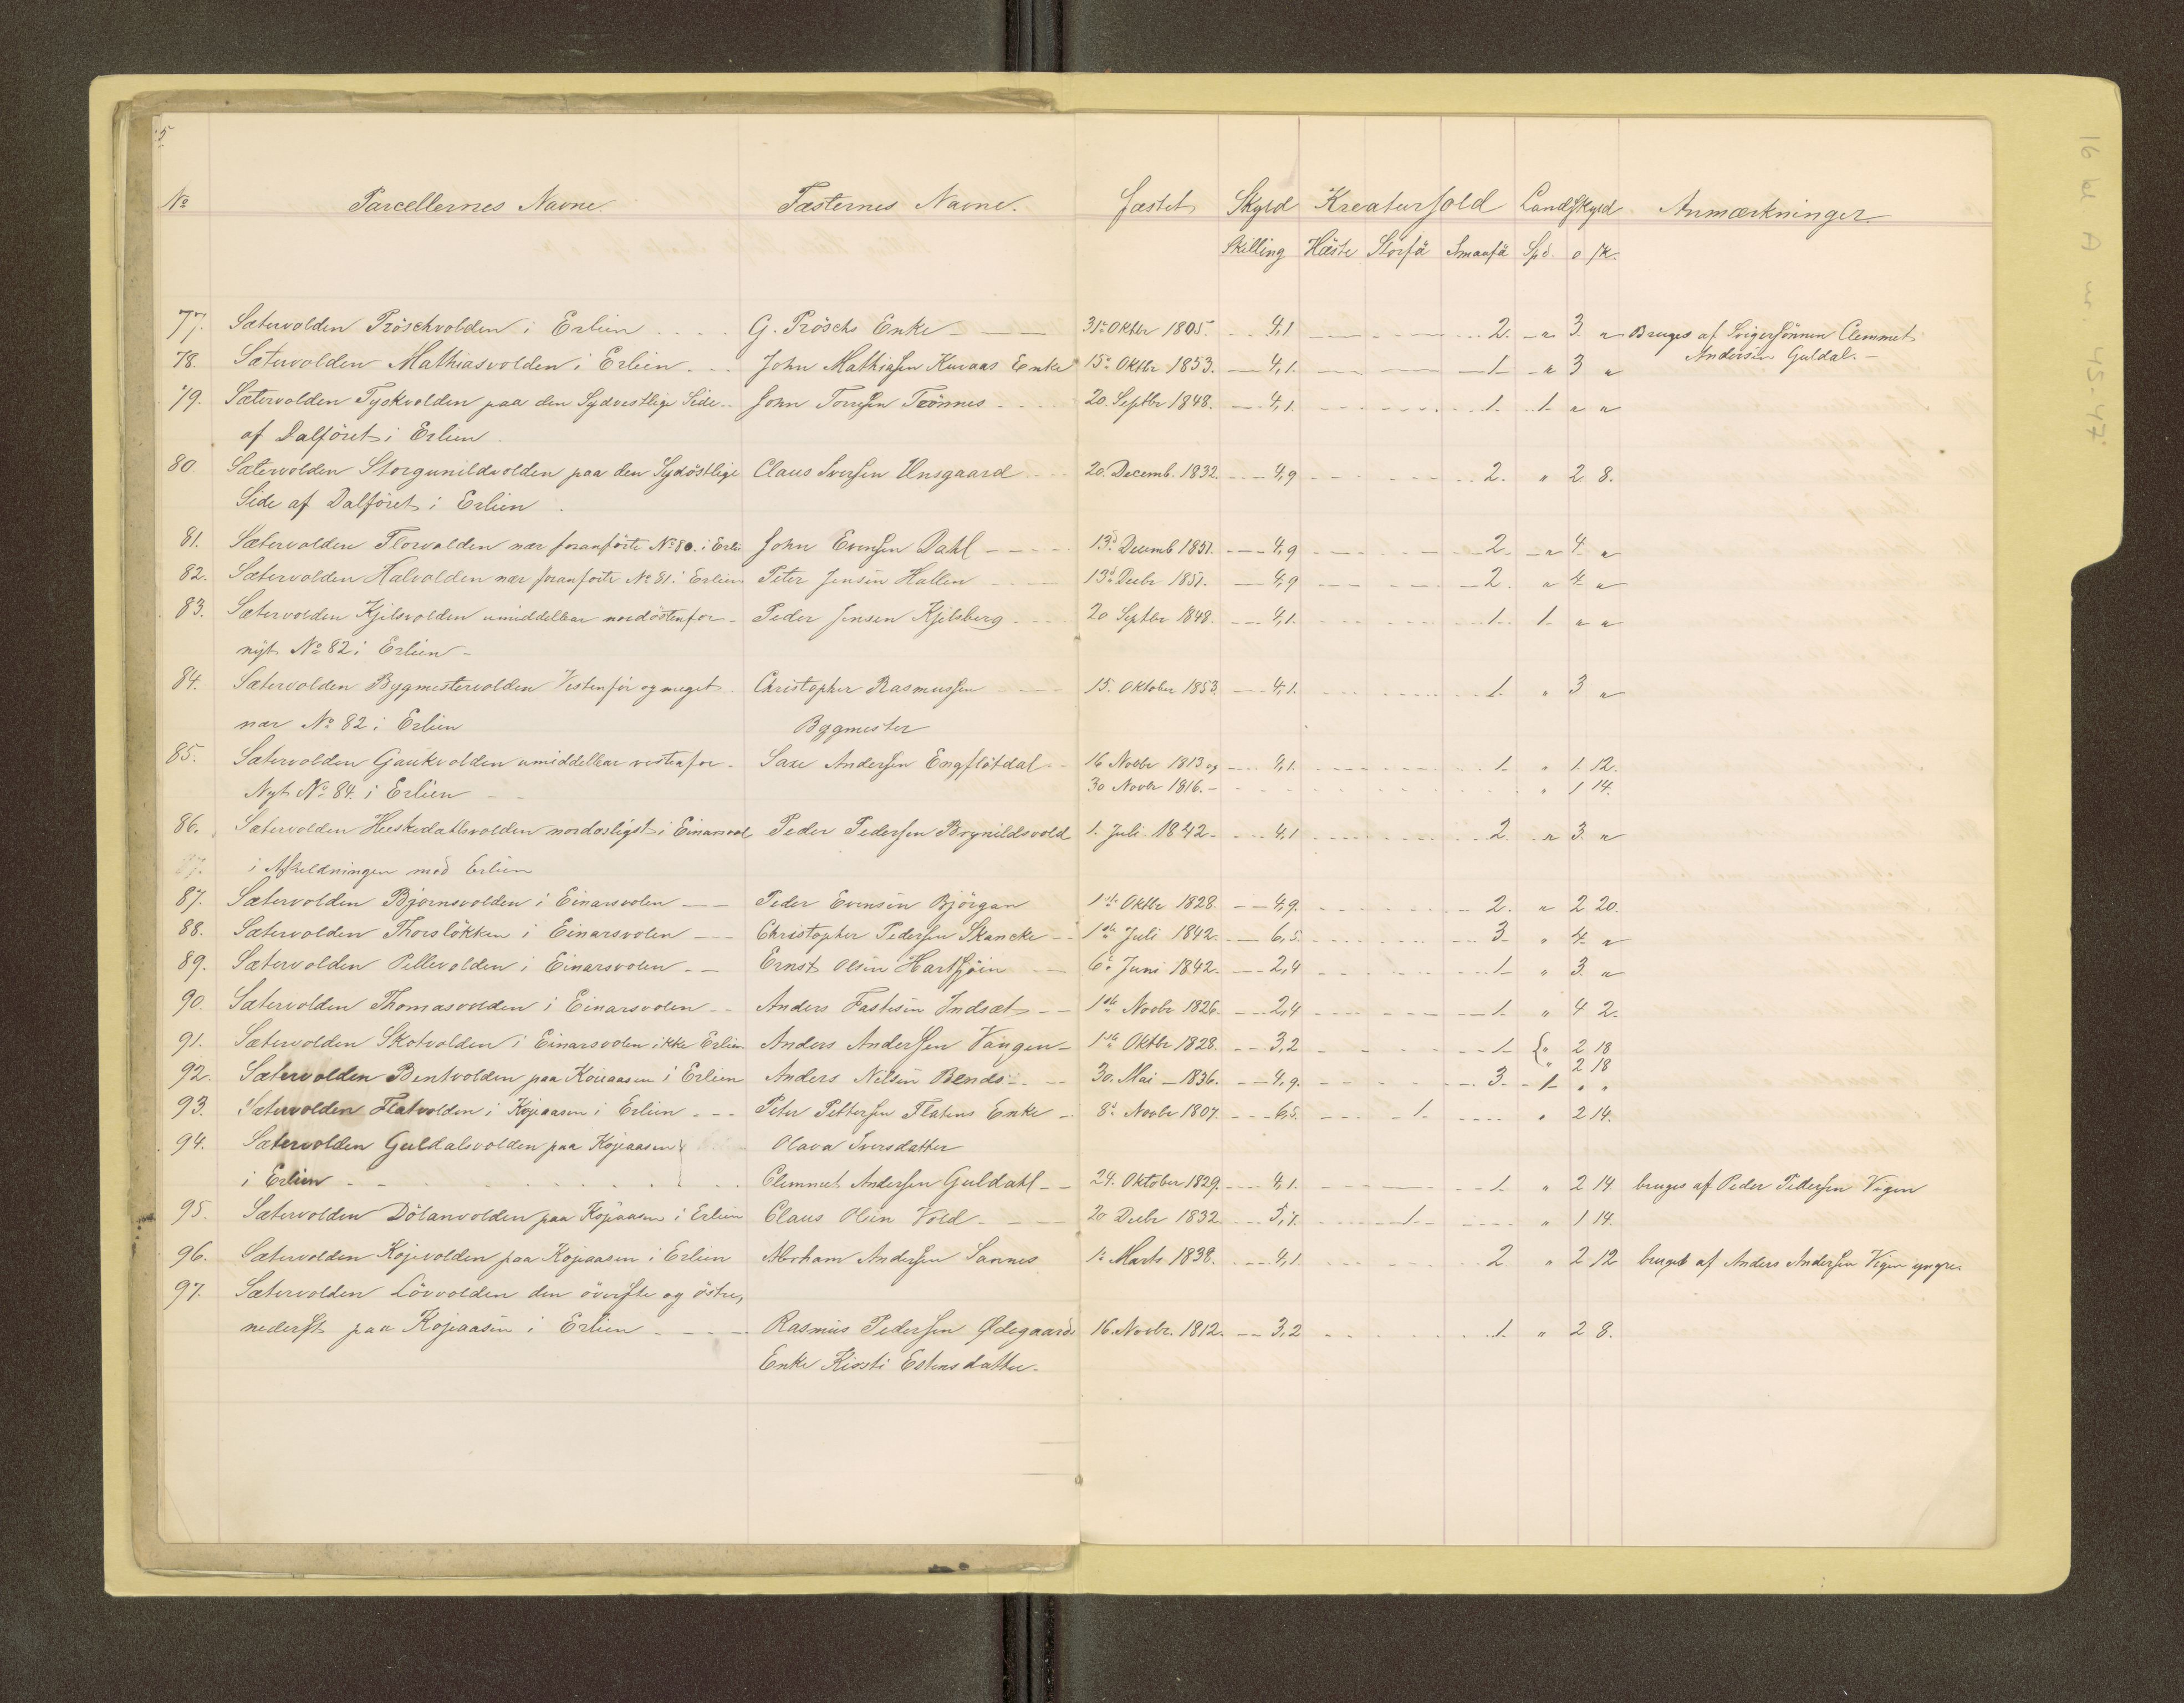 5
No Parcellernes Navne. Fæsternes Navne. fæstet Skyld Kreaturfold Landskyld Anmærkninger.
Skilling Häste Storfä Smaafä Spd. o sk.
77. Sætervolden Pröschvolden i Erlien G. Pröschs Enke 31te Oktbr 1805. 4,1 2. " 3 " Bruges af Svigersönnen Clemmet
Andersen Guldal.
78. Sætervolden Mathiasvolden i Erlien John Mathiasen Kuraas Enke 15de Oktbr 1853. 4,1. 1. " 3 "
79. Sætervolden Tyskvolden paa den Sydvestlige Side John Torresen Trönnes 20. Septbr 1848. 4,1. 1. 1. " "
af Dalföret i Erlien.
80. Sætervolden Storgunildvolden paa den Sydöstlige Claus Iversen Unsgaard 20. Decemb. 1832. 4,9 2. " 2 8.
Side af Dalföret i Erlien.
81. Sætervolden Florvolden nær foranförte No 80. i Erli John Evensen Dahl 13d Decemb 1851. 4,9 2. " 4 "
82. Sætervolden Halvolden nær foranförte No 81. i Erlien Peter Jensen Hallen 13d Decbr 1851. 4,9 2. " 4 "
83. Sætervolden Kjelsvolden umiddelbar nordöstenfor Peder Jensen Kjelsberg 20 Septbr 1848. 4,1. 1. 1. " "
nyt No 82 i Erlien
84. Sætervolden Bygmestervolden Vestenfor og meget Christopher Rasmussen 15. Oktober 1853. 4,1. 1. " 3 "
nær No 82 i Erlien Bygmester
85. Sætervolden Gaukvolden umiddelbar vestenfor Saxe Andersen Engslötdal 16 Novbr 1813 og 4,1. 1. " 1. 12.
Nyt No 84. i Erlien 30 Novbr 1816. " 1 14.
86. Sætervolden Heskedatlsvolden nordosligst i Einarsvol Peder Pedersen Brynildsvold 1. Juli 1842. 4,1 2. " 3. "
87. i Afheldningen mod Erlien
87. Sætervolden Bjornsvolden i Einarsvolen Peder Evensen Björgan 1ste Oktbr 1828. 4,9. 2. " 2 20.
88. Sætervolden Thorslökken i Einarsvolen Christopher Pedersen Skancke 1ste Juli 1842. 6,5. 3. " 4 "
89. Sætervolden Pellevolden i Einarsvolen Ernst Olsen Hartsjöin 6te Juni 1842. 2,4 1. " 3. "
90. Sætervolden Thomasvolden i Einarsvolen Anders Fastesen Indsæt 1ste Novbr 1826. 2,4 1. " 4 2.
91. Sætervolden Skotvolden i Einarsvolen ikke Erlien Anders Andersen Vangen 1ste Oktbr 1828. 3,2 1. { " 2 18
" 2 18
92. Sætervolden Bentvolden paa Kojeaasen i Erlien Anders Nilsen Bends 30. Mai 1836. 4,9. 3. 1. " "
93. Sætervolden Flatvolden i Kojeaasen i Erlien Peter Pettersen Flatens Enke 8d Novbr 1807. 6,5. 1. " 2 14.
94. Sætervolden Guldalsvolden paa Kojeaasen Olava Iversdatter
i Erlien Clemmet Andersen Guldahl 24. Oktober 1829. 4,1. 1. " 2 14. bruges af Peder Pedersen Vigen
95. Sætervolden Dölanvolden paa Kojeaasen i Erlien Claus Olsen Vold 20 Decbr 1832. 5,7. 1. " 1 14.
96. Sætervolden Kojevolden paa Kojeaasen i Erlien Abraham Andersen Sannes 1te Marts 1838. 4,1. 2. " 2 12 bruges af Anders Andersen Vigen yngre.
97. Sætervolden Lövvolden den överste og östre,
nederst paa Kojeaasen i Erlien Rasmus Pedersen Ødegaards 16. Novbr. 1812. 3,2 1. " 2 8.
Enke Kirsti Estensdatter.